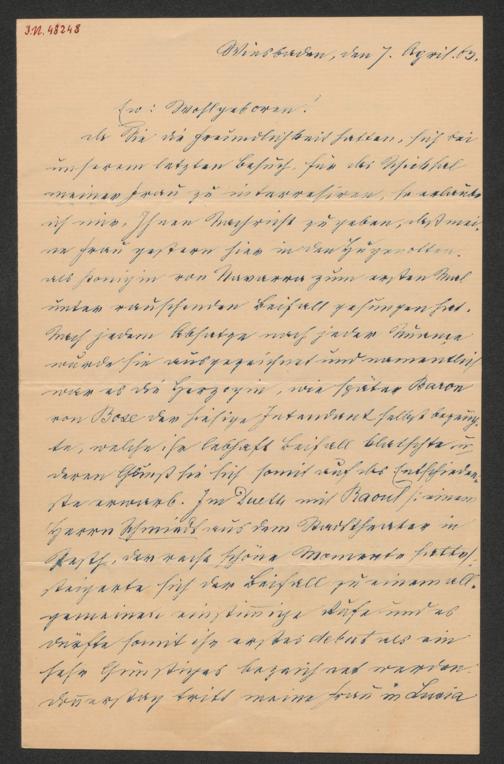 I.N. 48248
Wiesbaden, den 7. April. 63.
Ew: Wohlgeboren!
da Sie die Freundlichkeit hatten, sich bei
unserem letzten Besuch für das Schicksal
meiner Frau zu interressiren, so erlaube
ich mir, Ihnen Nachricht zu geben, daß mei-
ne Frau gestern hier in den Hugenotten.
als Königin von Navarra zum ersten Mal
unter rauschenden Beifall gesungen hat.
Nach jedem Absatze nach jeder Nuance
wurde sie ausgezeichnet und namentlich
war es die Herzogin, wie später Baron
von Bose der hiesige Intendant selbst bezeug-
te, welche ihr lebhaft Beifall klatschte u
deren Gunst sie sich somit auf das Entschieden-
ste erwarb. Im Duette mit Raoul /: einem
Herrn Schmidt aus dem Stadttheater in
Pesth, der recht schöne Momente hatte /
steigerte sich der Beifall zu einem all-
gemeinen einstimige Rufe und es
dürfte somit ihr erstes debut als ein
sehr Günstiges bezeichnet werden.
donerstag tritt meine Frau in Lucia